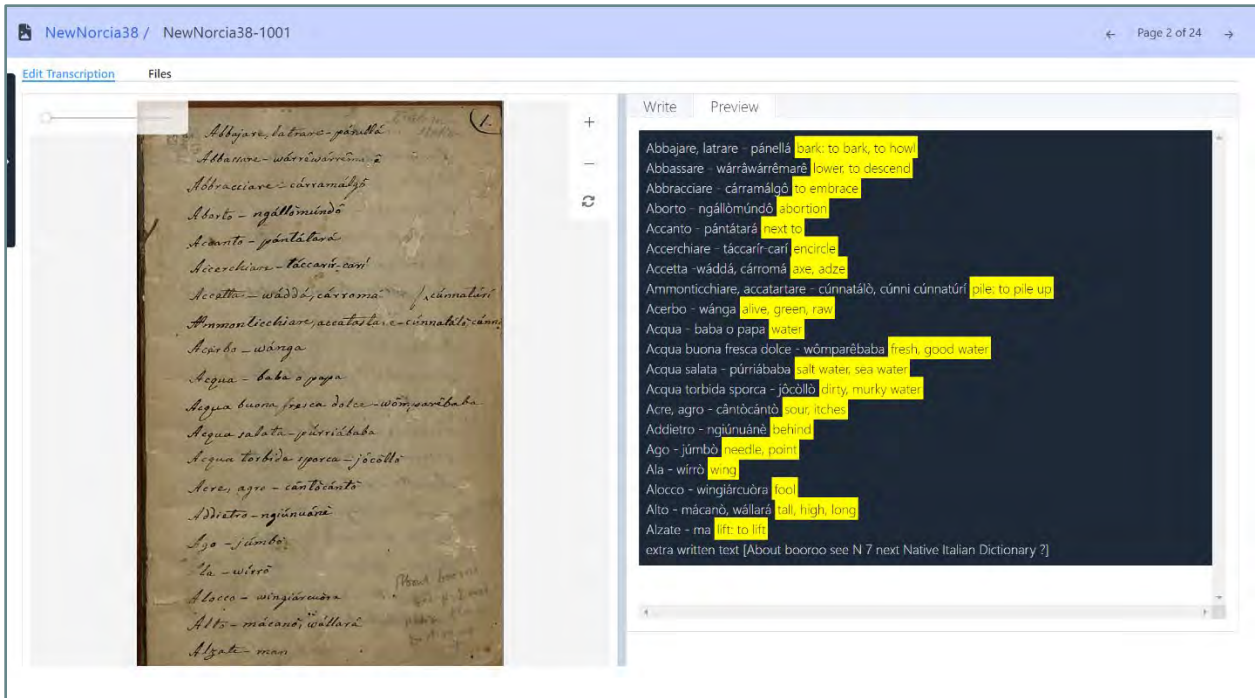 NewNorcia38 / NewNorcia38-1001
Page 2 of 24
Edit Transcription Files
1.
Abbajare, latrare - pánellá
Abbassare - wárrêwárrêma
Abbracciare - cárramálgô
Aborto - ngállòmúndô
Accanto - pántátará
Accerchiare - táccarír-carí
Accetta - wáddá, cárromá
cúnnatúrí
Ammonticchiare, accatastare - cúnnatálò cúnni
Acerbo - wánga
Acqua - baba o papa
Acqua buona fresca dolce - wômparêbaba
Acqua salata - púrriábaba
Acqua torbida sporca - jôcòllò
Acre, agro - cântòcántò
Addietro - ngiúnuánè
Ago - júmbò
Ala - wírrò
Alocco - wingiárcuòra
Alto - mácanò, wállará
Alzate - man
About booroo
Write Preview
Abbajare, latrare - pánellá bark: to bark, to howl
Abbassare - wárrâwárrêmarê lower, to descend
Abbracciare - cárramálgô to embrace
Aborto - ngállòmúndô abortion
Accanto - pántátará next to
Accerchiare - táccarír-carí encircle
Accetta -wáddá, cárromá axe, adze
Ammonticchiare, accatartare - cúnnatálò, cúnni cúnnatúrí pile: to pile up
Acerbo - wánga alive, green, raw
Acqua - baba o papa water
Acqua buona fresca dolce - wômparêbaba fresh, good water
Acqua salata - púrriábaba salt water, sea water
Acqua torbida sporca - jôcòllò dirty, murky water
Acre, agro - cântòcántò sour, itches
Addietro - ngiúnuánè behind
Ago - júmbò needle, point
Ala - wírrò wing
Alocco - wingiárcuòra fool
Alto - mácanò, wállará tall, high, long
Alzate - ma lift: to lift
extra written text [About booroo see N 7 next Native Italian Dictionary ?]